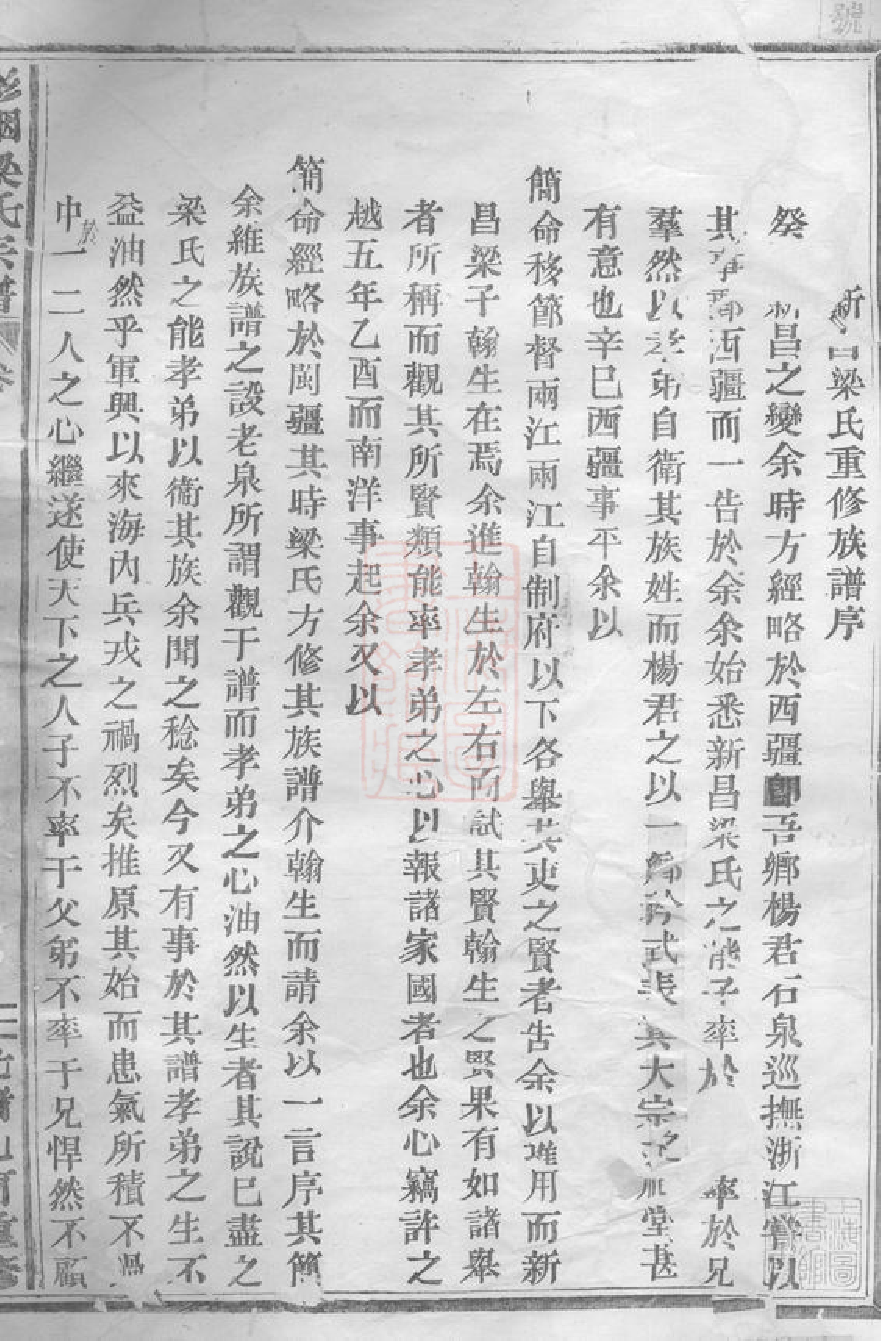 新昌梁氏重修族譜序
癸 昌之變余時方經略於西疆吾鄉楊君石泉巡撫浙江嘗以
其事 西疆而一告於余余始悉新昌梁氏之能子率於 率於兄
羣然以孝弟自衛其族姓而楊君之以一 式表其大宗之 堂甚
有意也辛巳西疆事平余以
簡命移節督兩江兩江自制府以下各舉其吏之賢者告余以 用而新
昌梁子翰生在焉余進翰生於左右而試其賢翰生之賢果有如諸舉
者所稱而觀其所賢類能率孝弟之心以報諸家國者也余心竊許之
越五年乙酉而南洋事起余又以
簡命經略於閩疆其時梁氏方修其族譜介翰生而請余以一言序其簡
余維族譜之設老泉所謂觀于譜而孝弟之心油然以生者其說已盡之
梁氏之能孝弟以衛其族余聞之稔矣今又有事於其譜孝弟之生不
益油然乎軍興以來海內兵戎之禍烈矣推原其始而患氣所積不過
中於一二人之心繼遂使天下之人子不率于父弟不率于兄悍然不顧
梁氏宗譜
號
上海圖書館藏